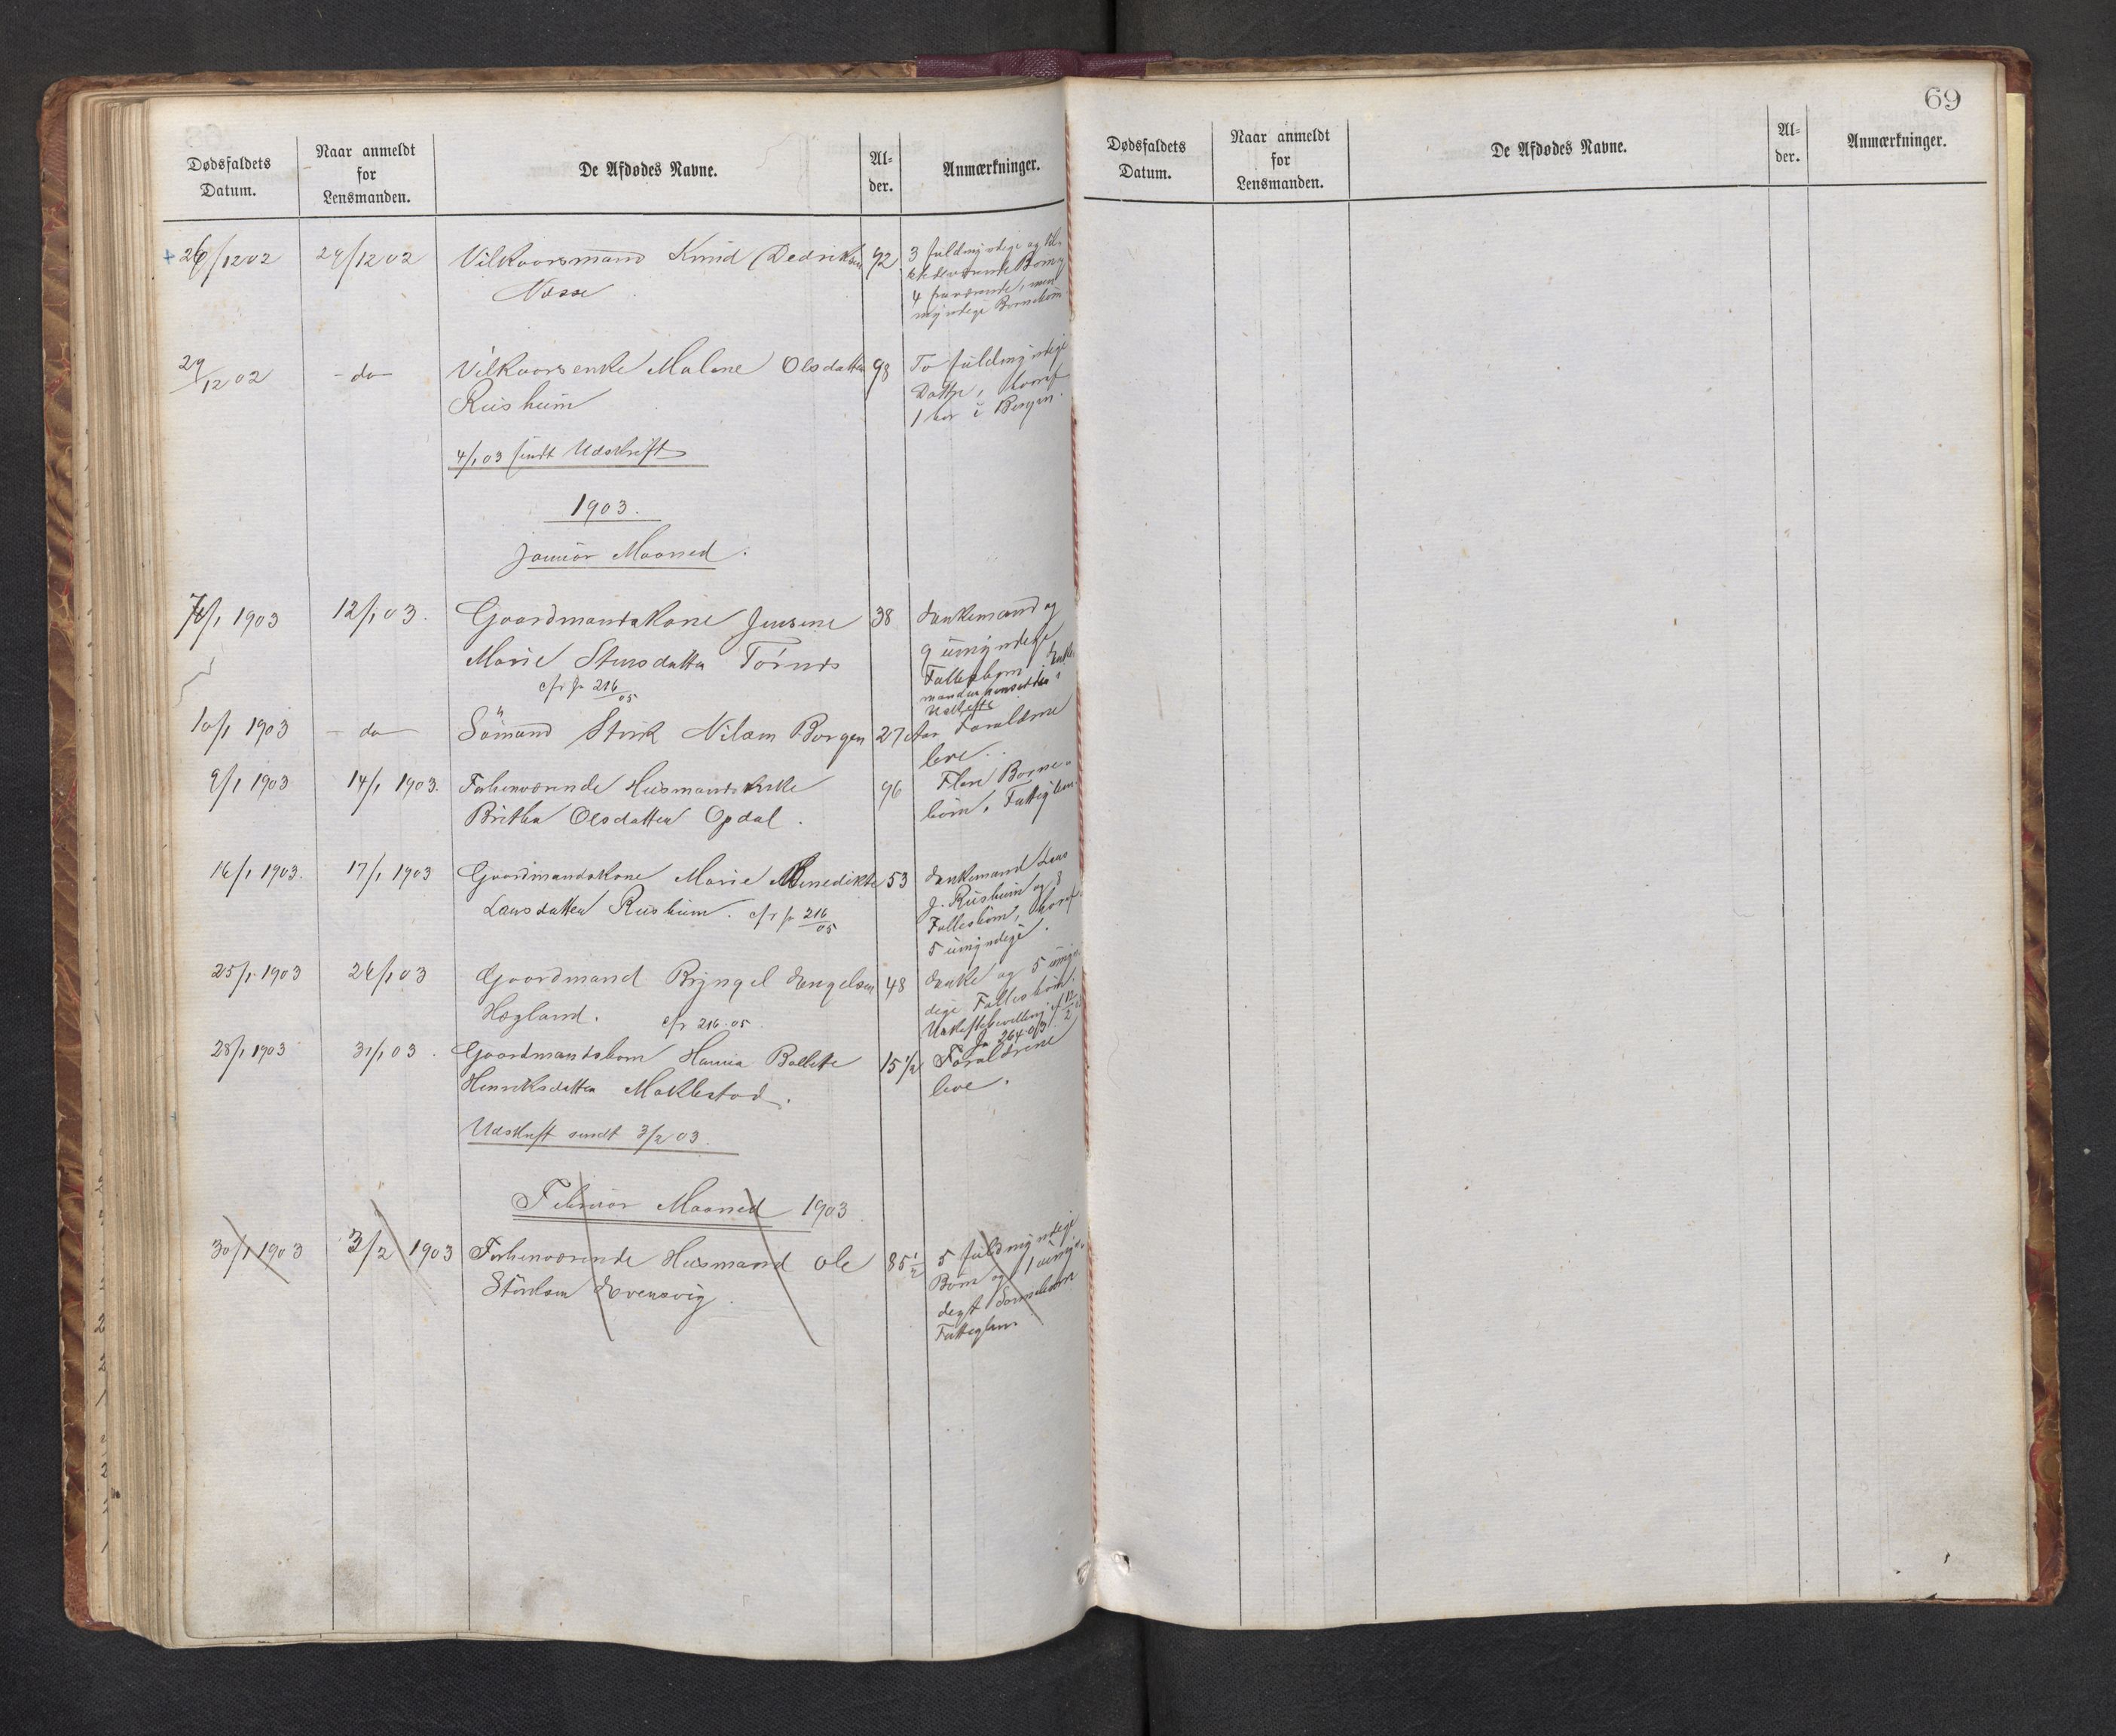 69
Dødsfaldets Datum.
Naar anmeldt for Lensmanden.
De Afdødes Navne.
Al-der.
Anmærkninger.
26/12 02 29/12 02 Vilkaarsmand Knud Dedriksen 92 3 fuldmyndige og
Nesse
4 fraværende, men
myndige Børnebørn
29/12 02 - do - Vilkaarsenke Malene Olsdatter 98 To fuldmyndige
Risheim Døttre, hvoraf
1 bor i Bergen.
4/1 03 sendt Udskrift
1903.
Januar Maaned.
7/1 1903 12/1 03. Gaardmandskone Jensine 38 Enkemand og
Marie Stursdatter 9 umyndige
Fællesbørn. Enke-
cfr fr 216/05
10/1 1903 - do - Sømand Nilsen Borgen 27 Aar Forældrene
leve.
9/1 1903 14/1 1903. Forhenværende Husmandsenke 96 Flere Børne-
Britha Olsdatter Opdal. børn. Fattiglem.
16/1 1903. 17/1 1903 Gaardmandskone Marie Benedikte 53 Enkemand Lars
Larsdatter Risheim. cfr fr 216/05 J. Risheim og 8
Fællesbørn, hvoraf
5 umyndige.
25/1 1903 26/1 03 Gaardmand Bryngel Engelsen 48 Enke og 5 umyn-
Høgland. cfr 216.05. dige Fællesbørn.
Uskiftebevilling af 12/2
Jr 264 03.
28/1 1903 31/1 03. Gaardmandsbarn Hanna Bollette 15 1/2 Forældrene
Henriksdatter Maklestad. leve.
Udskrift sendt 3/2 03.
Februar Maaned 1903
30/1 1903 3/2 1903 Forhenværende Husmand Ole 85 1/2 5 fuldmyndige
Evensvig. Børn og 1 umyn-
digt
Fattiglem
Dødsfaldets Datum.
Naar anmeldt for Lensmanden.
De Afdødes Navne.
Al-der.
Anmærkninger.